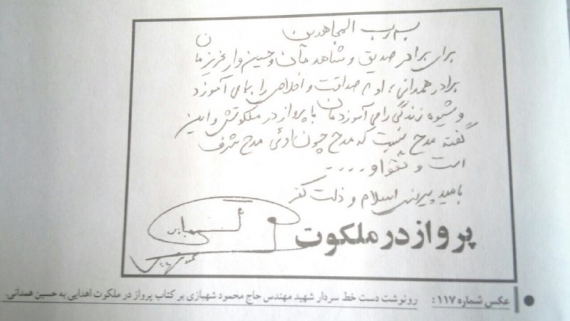 به رب المجاهدین
برای برادر صدیق و شاهدمان و حسین وار عزیزمان
برادر همدانی، او که صداقت و اخلاص را بما می آموزد
و شیوه زندگی را می آموزدمان با پرواز در ملکوتش و این
گفته مدح نیست که مدح چون ادئی مدح شرف
است و تقوا و ....
بامید پیروزی اسلام و ذلت کفر
شهبازی
پرواز در ملکوت
عکس شماره ۱۱۷: رونوشت دست خط سردار شهید مهندس حاج محمود شهبازی بر کتاب پرواز در ملکوت اهدایی به حسین همدانی.